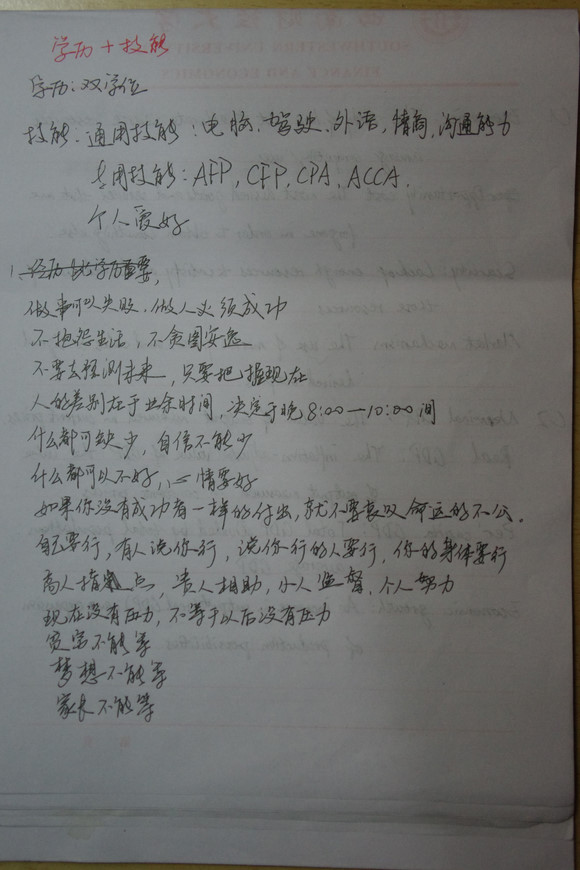 学历+技能
学历:双学位
技能.通用技能:电脑.驾驶.外语,情商,沟通能力
专用技能:AFP,CFP,CPA,ACCA.
个人爱好
做事可以失败.做人必须成功
不抱怨生活,不贪图安逸
不要去预测未来,只要把握现在
人的差别在于业余时间,决定于晚8:00—10:00间
什么都可缺少,自信不能少
什么都可以不好,心情要好
如果你没有成功者一样的付出,就不要哀叹命运的不公.
自己要行,有人说你行,说你行的人要行,你的身体要行
高人指点,贵人相助,小人监督,个人努力
现在没有压力,不等于以后没有压力
贫穷不能等
梦想不能等
家长不能等